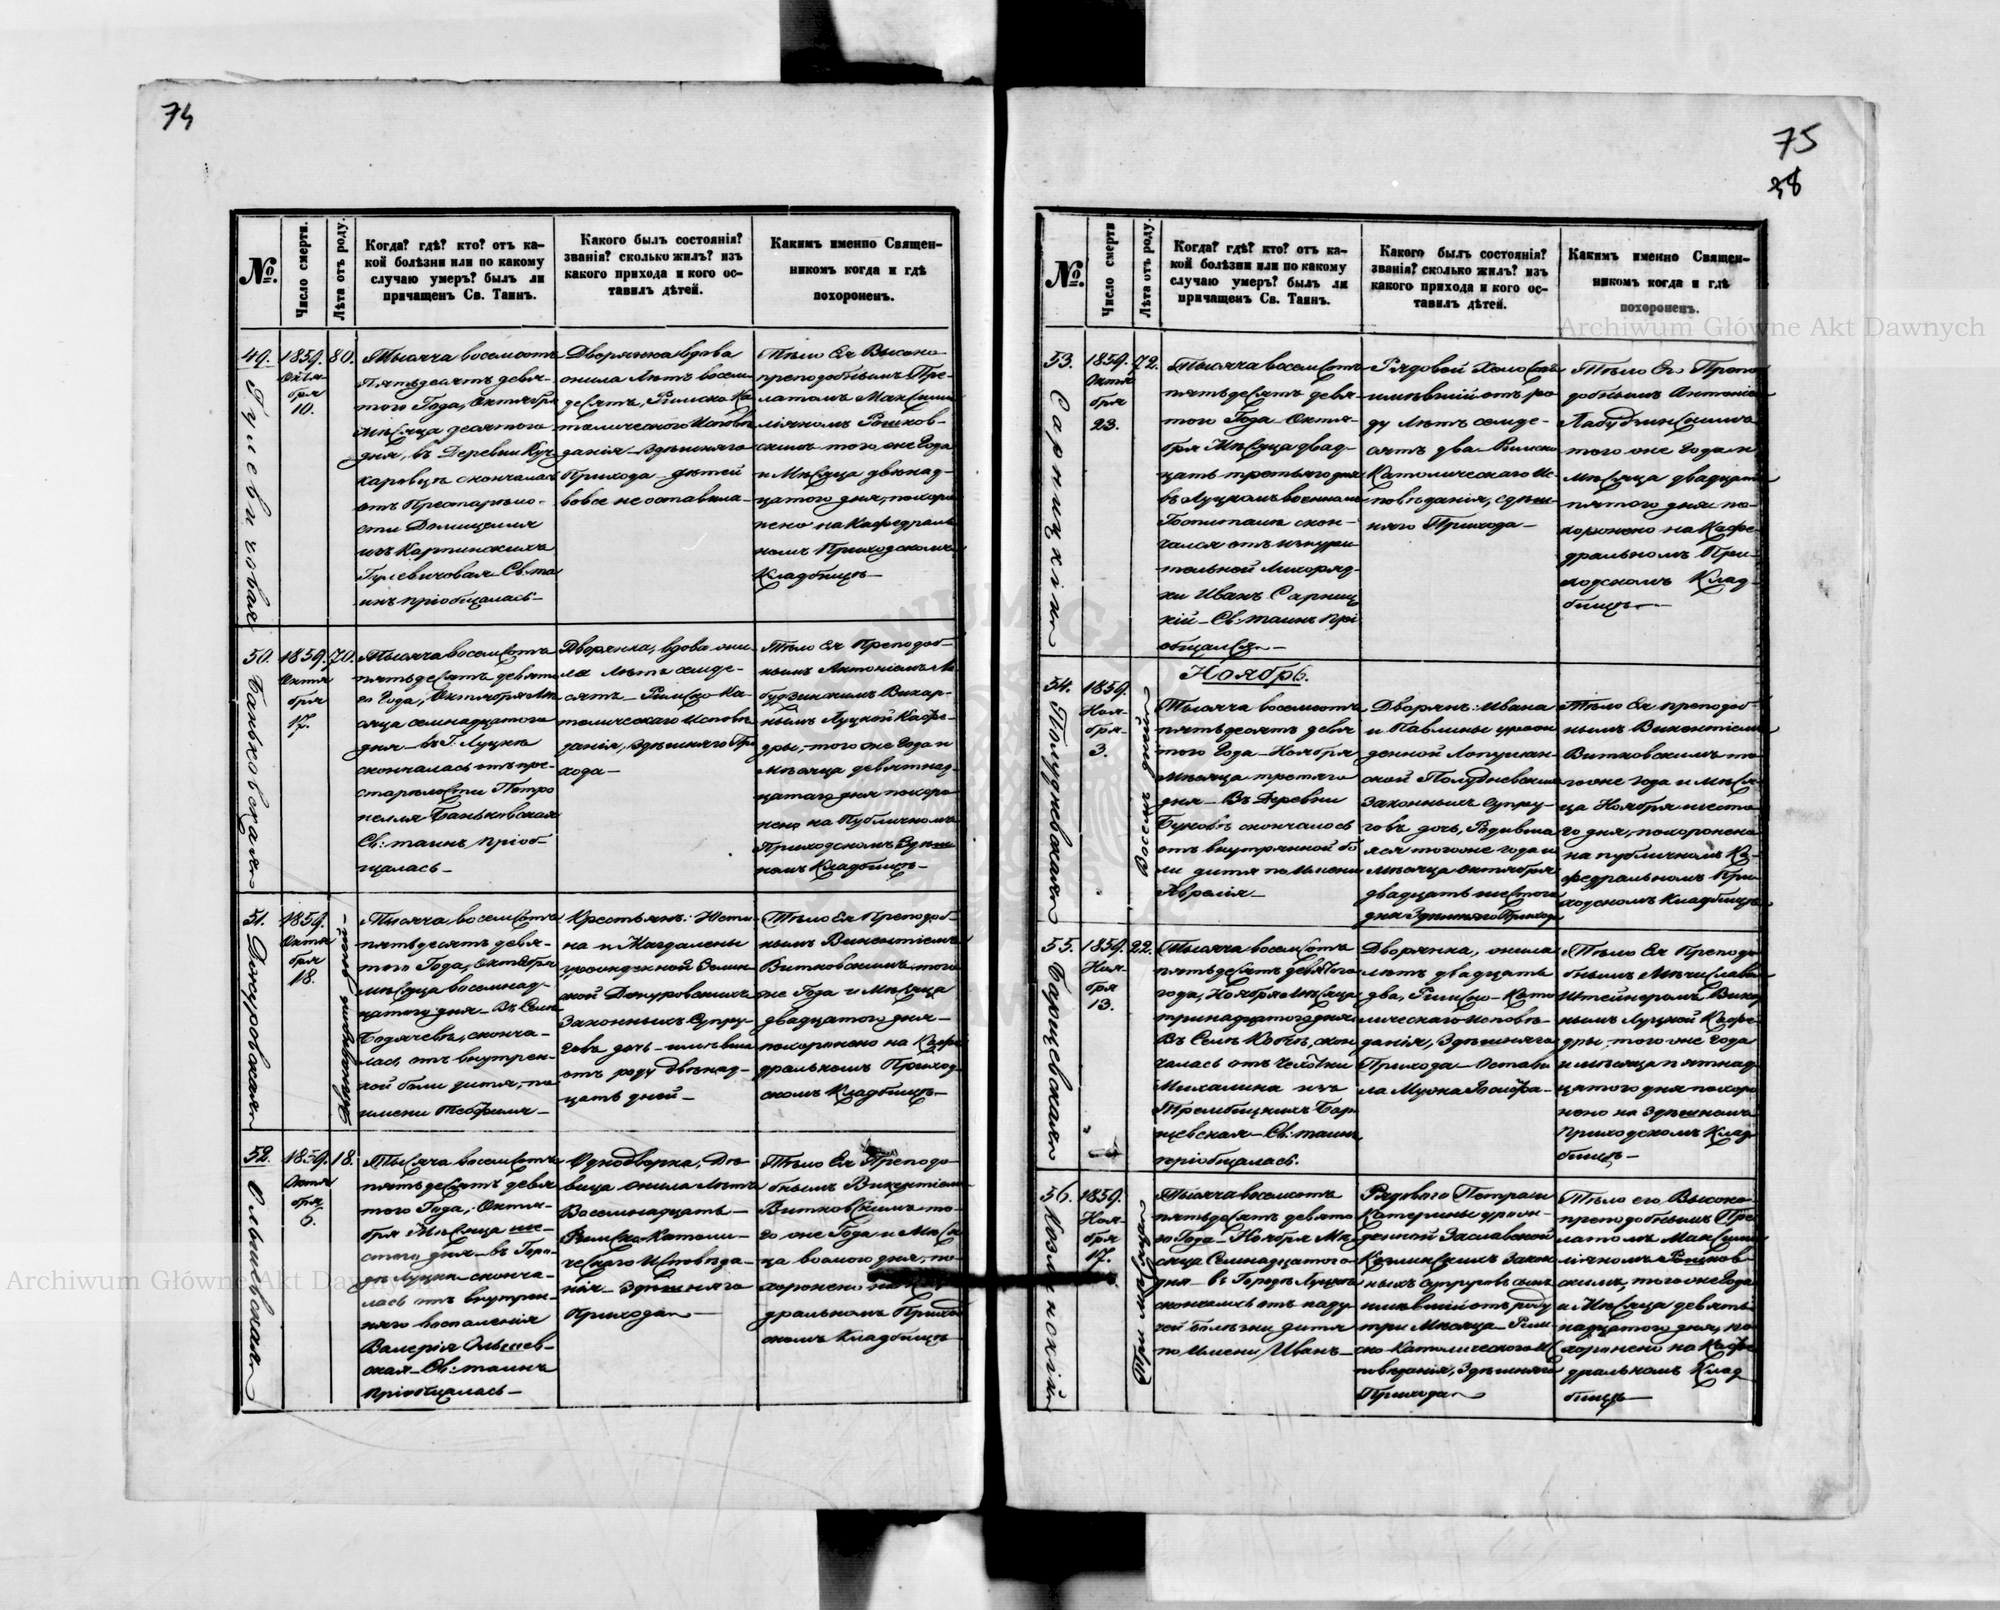 74
№.
Число смерти.
Лѣта отъ роду.
Когда? гдѣ? кто? отъ ка-
кой болѣзни или по какому
случаю умеръ? былъ ли
причащенъ Св. Таинъ.
Какого былъ состоянія?
званія? сколько жилъ? изъ
какого прихода и кого ос-
тавилъ дѣтей.
Какимъ именно Священ-
никомъ когда и гдѣ
похороненъ.
49.
Гулевичовая
1859.
Октя-
бря
10.
80.
Тысяча восемсотъ
Пятьдесятъ девя-
того Года, Октября
Мѣсяца десятого
дня, въ Деревни
скончалась
отъ Престарѣло-
сти
изъ Карпинскихъ
Гулевичовая Св: та
инъ пріобщалась
Дворянка вдова
жила Лѣтъ восем
десятъ, Римско Ка
толического Исповѣ
данія здѣшняго
Прихода дѣтей
вовсе не оставила
Тѣло Ея Высоко
преподобнымъ Пре
латомъ Максими
ліяномъ Рошков-
скимъ того же Года
и Мѣсяца двѣнад-
цатого дня, похоро
нено на Кафедраль
номъ Приходскомъ
Кладбищѣ
50.
Баньковская
1859.
Октя
бря
17.
70.
Тысяча восемсотъ
пятьдесятъ девято
го Года, Октября Мѣ
сяца семнадцатого
дня въ Г. Луцкѣ
скончалась отъ пре-
старѣлости Петро
нелля Баньковская
Св: таинъ пріоб-
щалась
Дворянка, вдова жи
ла Лѣтъ семде-
сятъ Римско Ка-
толическаго Исповѣ
данія, здѣшняго При
хода
Тѣло Ея Преподоб-
нымъ Антоніемъ Ла
будзинскимъ Викар-
нымъ Луцкой Кафе-
дры, того же Года и
мѣсяца девятнад-
цатаго дня похоро
нено на Публичномъ
Приходскомъ Здѣш
номъ Кладбищѣ
51.
Дзюровская
1859.
Октя
бря
18.
двѣнадцать дней
Тысяча восемсотъ
пятьдесятъ девя-
того Года, Октября
мѣсяца восемнад-
цатого дня Въ Селѣ
Бодячевѣ, сконча-
лась отъ внутрен-
ной боли дитя, по
имени Теофиля
Крестьянъ: Юсти
на и Магдалены
урожденной
кой Дзюровскихъ
Законныхъ Супру-
говъ дочь имѣвша
отъ роду двѣнад-
цать дней
Тѣло Ея Преподоб-
нымъ Викентіемъ
Витковскимъ того
же Года и Мѣсяца
двадцатого дня
похоронено на Кафе
дральномъ Приход-
скомъ Кладбищѣ
52.
Ольшевская
1859.
Октя
бря
6.
18.
Тысяча восемсотъ
пятьдесятъ девя
того Года, Октя-
бря Мѣсяца ше-
стого дня въ Горо-
дѣ Луцкѣ сконча-
лась отъ внутрен-
няго воспаленія
Валерія Ольшев-
ская Св: таинъ
пріобщалась
Однодворка, Дѣ
вица жила Лѣтъ
Восемнадцать
Римско Католи-
ческаго Исповѣда-
нія здѣшняго
Прихода
Тѣло Ея Преподо-
бнымъ Викентіемъ
Витковскимъ то-
го же Года и Мѣся
ца восмого дня, по-
хоронено на Кафе
дральномъ Приход
скомъ Кладбищѣ
75
38
№.
Число смерти
Лѣта отъ роду.
Когда? гдѣ? кто? отъ ка-
кой болѣзни или по какому
случаю умеръ? былъ ли
причащенъ Св. Таинъ.
Какого былъ состоянія?
званія? сколько жилъ? изъ
какого прихода и кого ос-
тавилъ дѣтей.
Какимъ именно Священ-
никомъ когда и гдѣ
похороненъ.
53.
Сарницкій
1859.
Октя
бря
23.
72.
Тысяча восемсотъ
пятьдесятъ девя-
того Года Октя-
бря Мѣсяца двад-
цать третьяго дня
въ Луцкомъ военномъ
Гошпиталѣ скон-
чался отъ изнури
тельной Лихорад-
ки Иванъ Сарниц
кій Св: таинъ прі
общался
Рядовой Холостъ
имѣвшій отъ ро
ду Лѣтъ семде-
сятъ два Римско
Католическаго Ис
повѣданія, сдѣш
няго Прихода
Тѣло Его Препо
добнымъ Антоніемъ
Лабудзинскимъ
того же Года и
Мѣсяца двадцать
пятого дня по-
хоронено на Кафе
дральномъ При-
ходскомъ Клад-
бищѣ
Ноябрь.
54.
Полудневская
1859.
Ноя-
бря
3.
Восемь дней
Тысяча восемсотъ
пятьдесятъ девя
того Года Ноября
Мѣсяца третяго
дня Въ Деревни
скончалось
отъ внутрянной бо
ли дитя по Имени
Аврелія
Дворянъ: Ивана
и Павлины урож
денной Лопушан-
ской Полудневскихъ
Законныхъ Супру-
говъ дочь, Родивша
яся того же года и
мѣсяца Октября
двадцать шестого
дня Здѣшняго Прихода
Тѣло Ея преподоб-
нымъ Викентіемъ
Витковскимъ то-
го же года и мѣся
ца Ноября шесто
го дня, похоронено
на публичномъ Ка-
федральномъ При
ходскомъ Кладбищѣ
55.
Барщевская
1859.
Ноя-
бря
13.
22.
Тысяча восемсотъ
пятьдесятъ девятого
года, Ноября Мѣсяца
тринадцатого дня
Въ Селѣ скон
чалась отъ Чехотки
Михалина изъ
Трембицкихъ Бар
щевская Св: таинъ
пріобщалась.
Дворянка, жила
лѣтъ двадцать
два, Римско-Като
лическаго Исповѣ-
данія, Здѣшняго
Прихода Остави
ла Мужа
Тѣло Ея Преподо
бнымъ Мѣчиславомъ
Штейнеромъ Вика
нымъ Луцкой Кафе-
дры, того же Года
и мѣсяца пятнад-
цатого дня похоро
нено на Здѣшномъ
Приходскомъ Клад
бищѣ
56.
Козминскій
1859.
Ноя-
бря
17.
Три мѣсяца
Тысяча восемсотъ
пятьдесятъ девято
го Года Ноября Мѣ
сяца Семнадцатого
дня въ Городѣ Луцкѣ
скончалось отъ паду-
чей болѣзни дитя
по Имени Иванъ
Рядового Петра и
Катерины урож-
денной Заславской
Козминскихъ Закон
ныхъ супруговъ сынъ
имѣвшій отъ роду
три Мѣсяца Рим
ско Католического Ис
повѣданія, Здѣшняго
Прихода
Тѣло его Высоко
преподобнымъ Пре
латомъ Максими
ліяномъ Рошков
скимъ, того же Года
и Мѣсяца девять
надцатого дня, по
хоронено на Кафе
дральномъ Клад
бищѣ
Archiwum Główne Akt Dawnych
Archiwum Główne Akt Dawnych